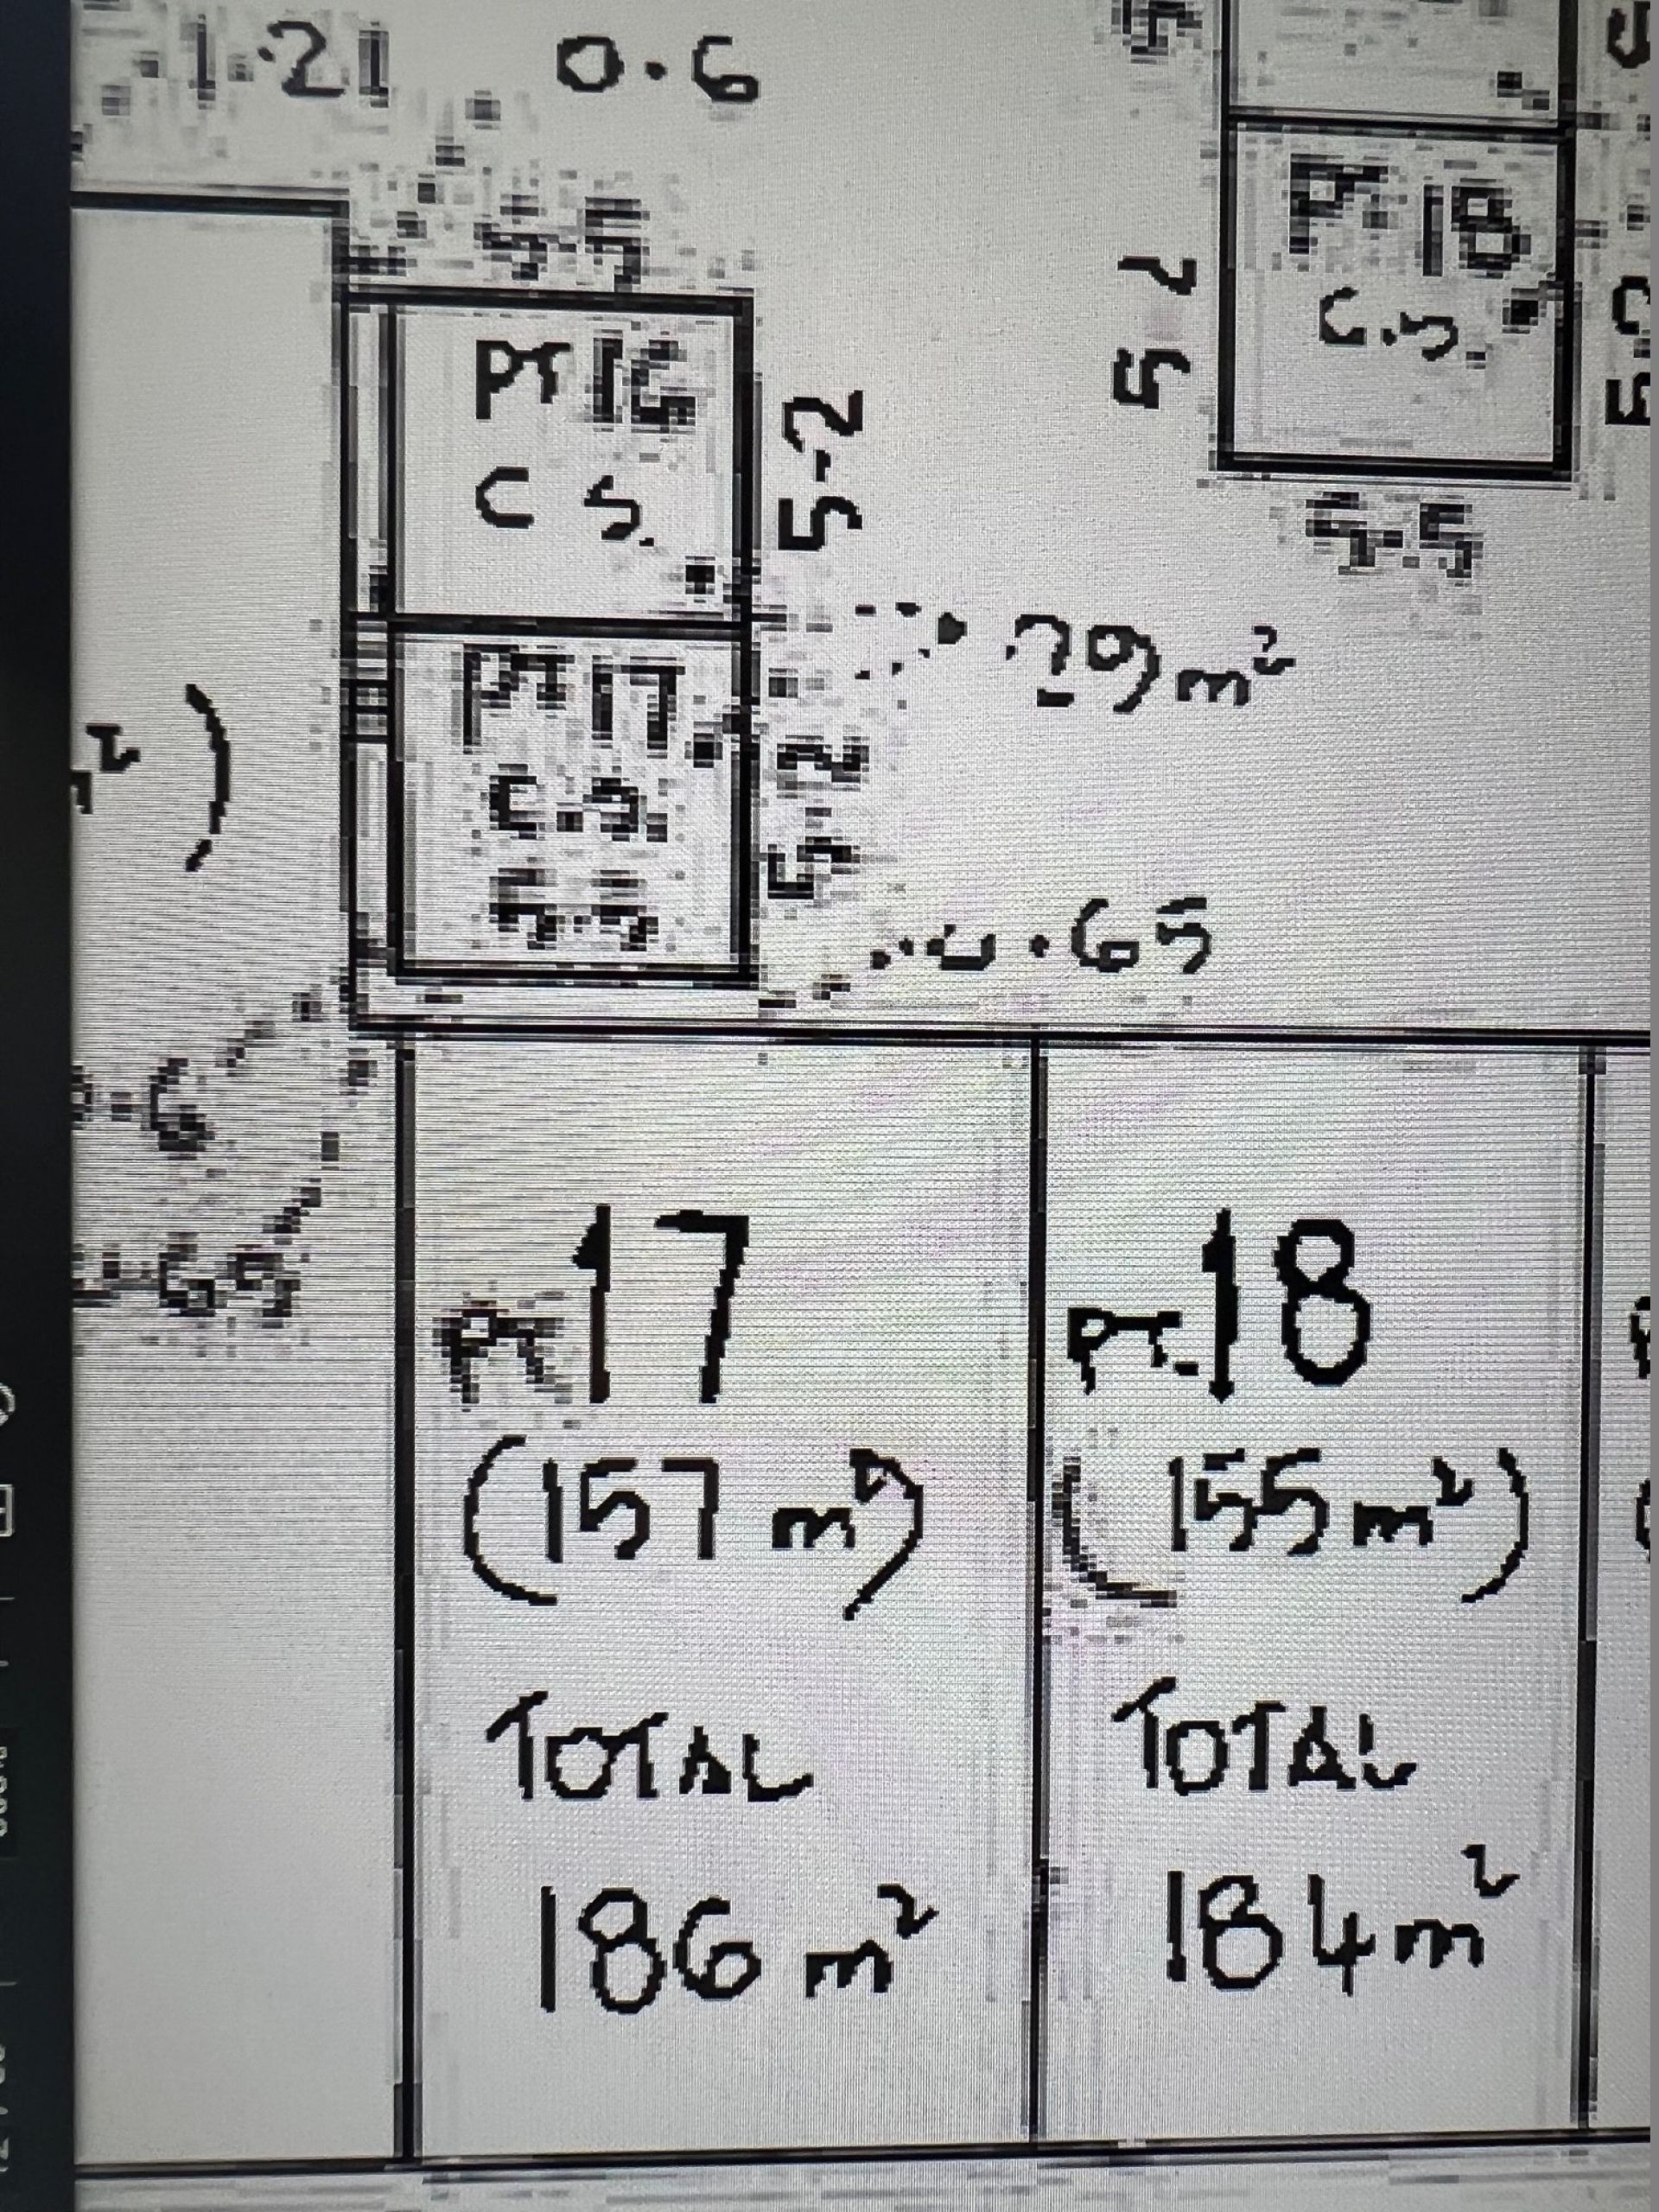 1.21 0.6
5.5
PT 16
C S.
5.2
PT 18
C.S.
5 2
5.5
PT 17
C.S.
5.5
5.2
29 m²
0.65
PT 17
(157 m²)
TOTAL
186 m²
PT. 18
(155 m²)
TOTAL
184 m²